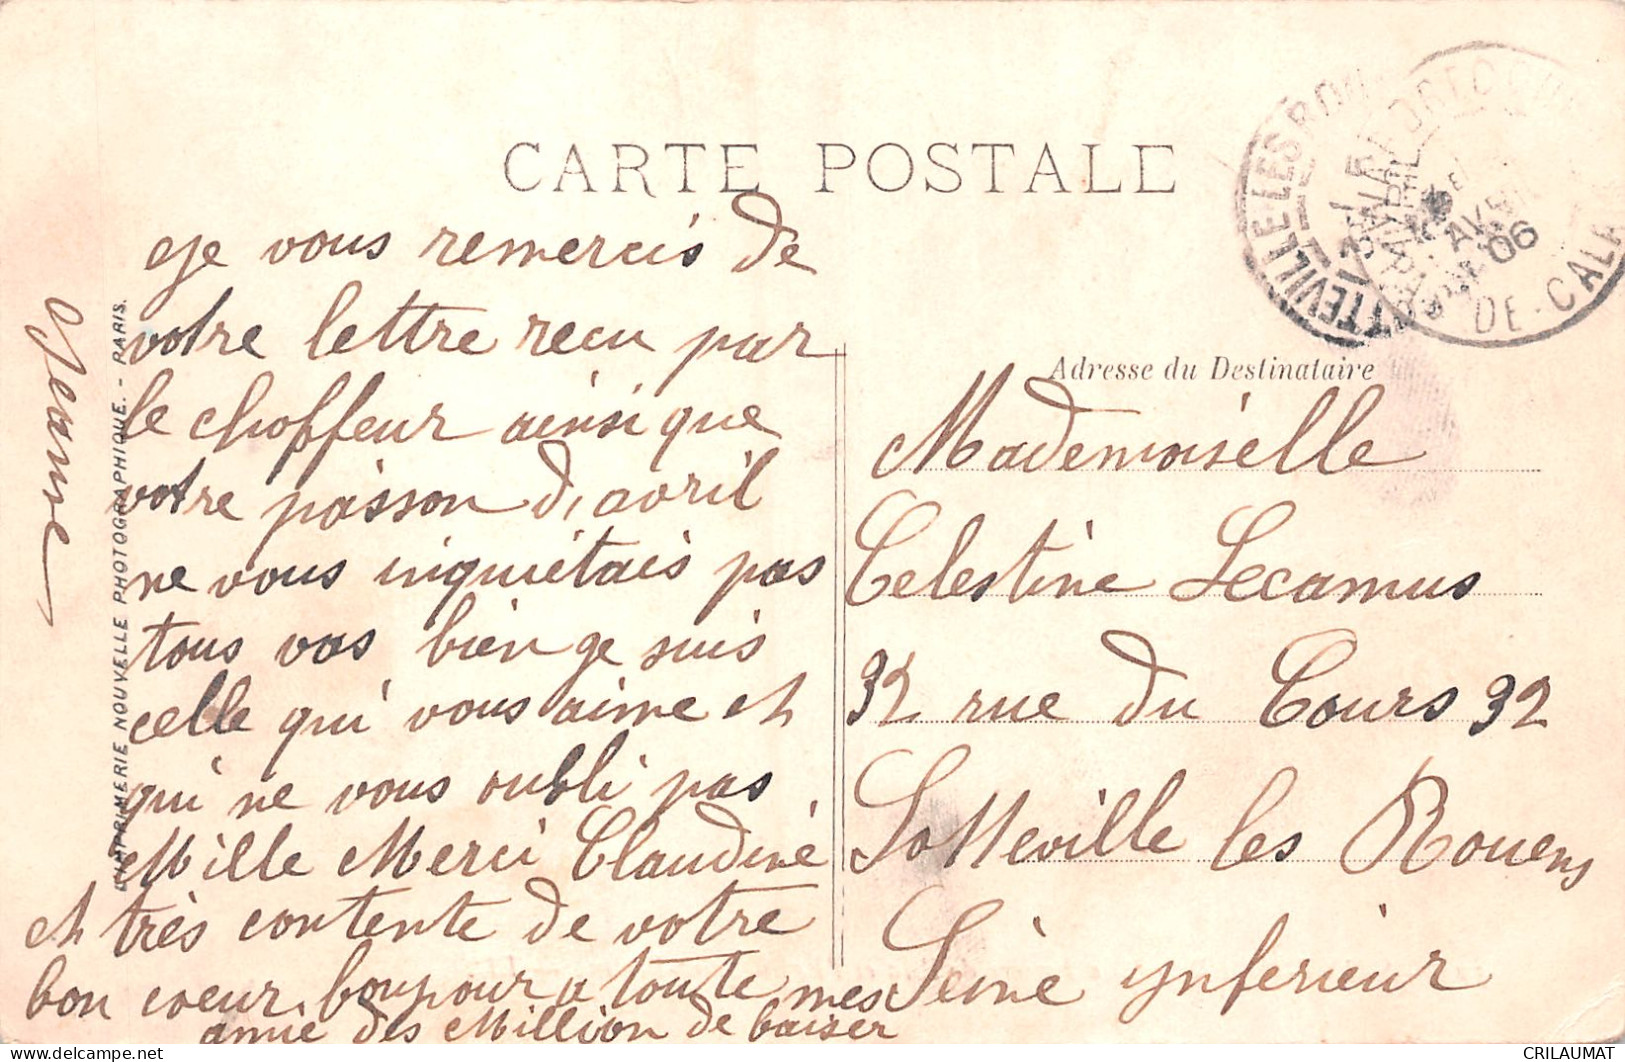 CARTE POSTALE
TTEVILLE LES ROU
AVRIL
06
DE-CALA
Adresse du Destinataire
Je vous remercis de
votre lettre recu par
le choffeur ainsi que
votre poisson d, avril
ne vous inquiétais pas
tous vas bien ge suis
celle qui vous aime et
qui ne vous oubli pas
Mille Merci Claudine
et très contente de votre
bon coeur bonjour a toute mes
amie des Million de baiser
Jeanne
IMPRIMERIE NOUVELLE PHOTOGRAPHIQUE. - PARIS.
Mademoiselle
Celestine Lecamus
32 rue du Cours 32
Sotteville les Rouens
Seine ynferieur
CRILAUMAT